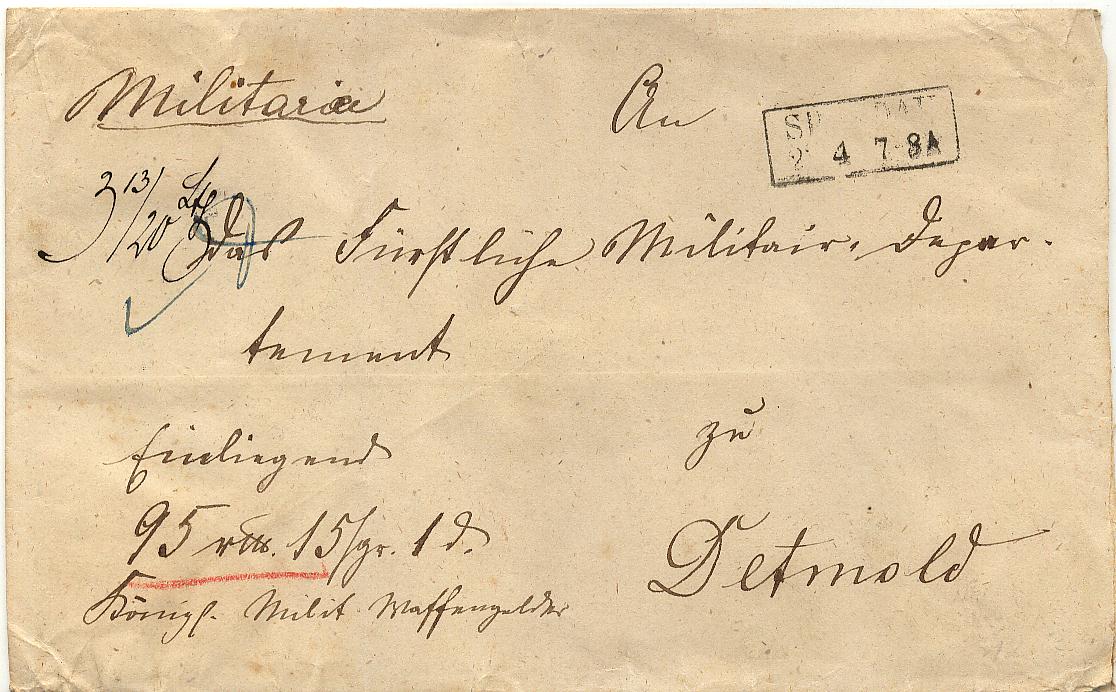 Militaria
An
SPANDAU
2 4 7-8A
3 13/20 Lth
das Fürstliche Militair-Depar-
tement
zu
Detmold
Einliegend
95 rtl. 15 sgr. 1 d.
Königl. Milit Waffengelder